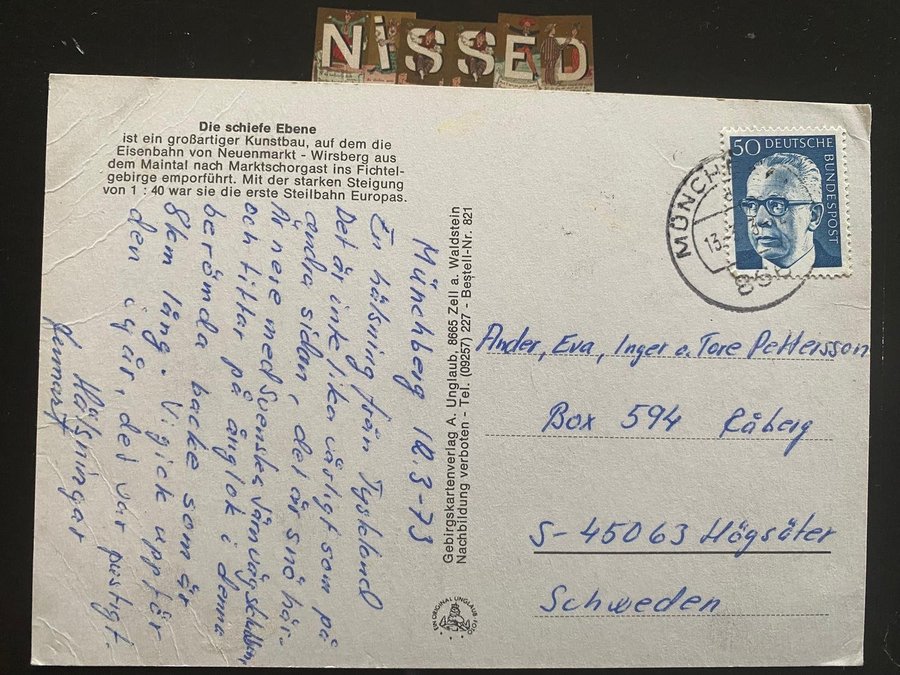 NiSSED
Die schiefe Ebene
ist ein großartiger Kunstbau, auf dem die
Eisenbahn von Neuenmarkt - Wirsberg aus
dem Maintal nach Marktschorgast ins Fichtel-
gebirge emporführt. Mit der starken Steigung
von 1 : 40 war sie die erste Steilbahn Europas.
Münchberg 12.3-73
En hälsning från Tyskland
Det är inte lika våstigt som på
andra sidan, det är snö här.
Är nere med Svenska Järnvägsklubben
och tittar på ånglok i denna
berömda backe som är
8km lång. Vi gick uppför
den igår, det var pustigt.
Hälsningar
Lennart
Gebirgskartenverlag A. Unglaub, 8665 Zell a. Waldstein
Nachbildung verboten - Tel. (09257) 227 - Bestell-Nr. 821
EIN ORIGINAL UNGLAUB FOTO
50 DEUTSCHE
BUNDESPOST
MÜNCHB
13.
866
Ander, Eva, Inger o. Tore Pettersson
Box 594 Råberg
S-45063 Högsäter
Schweden